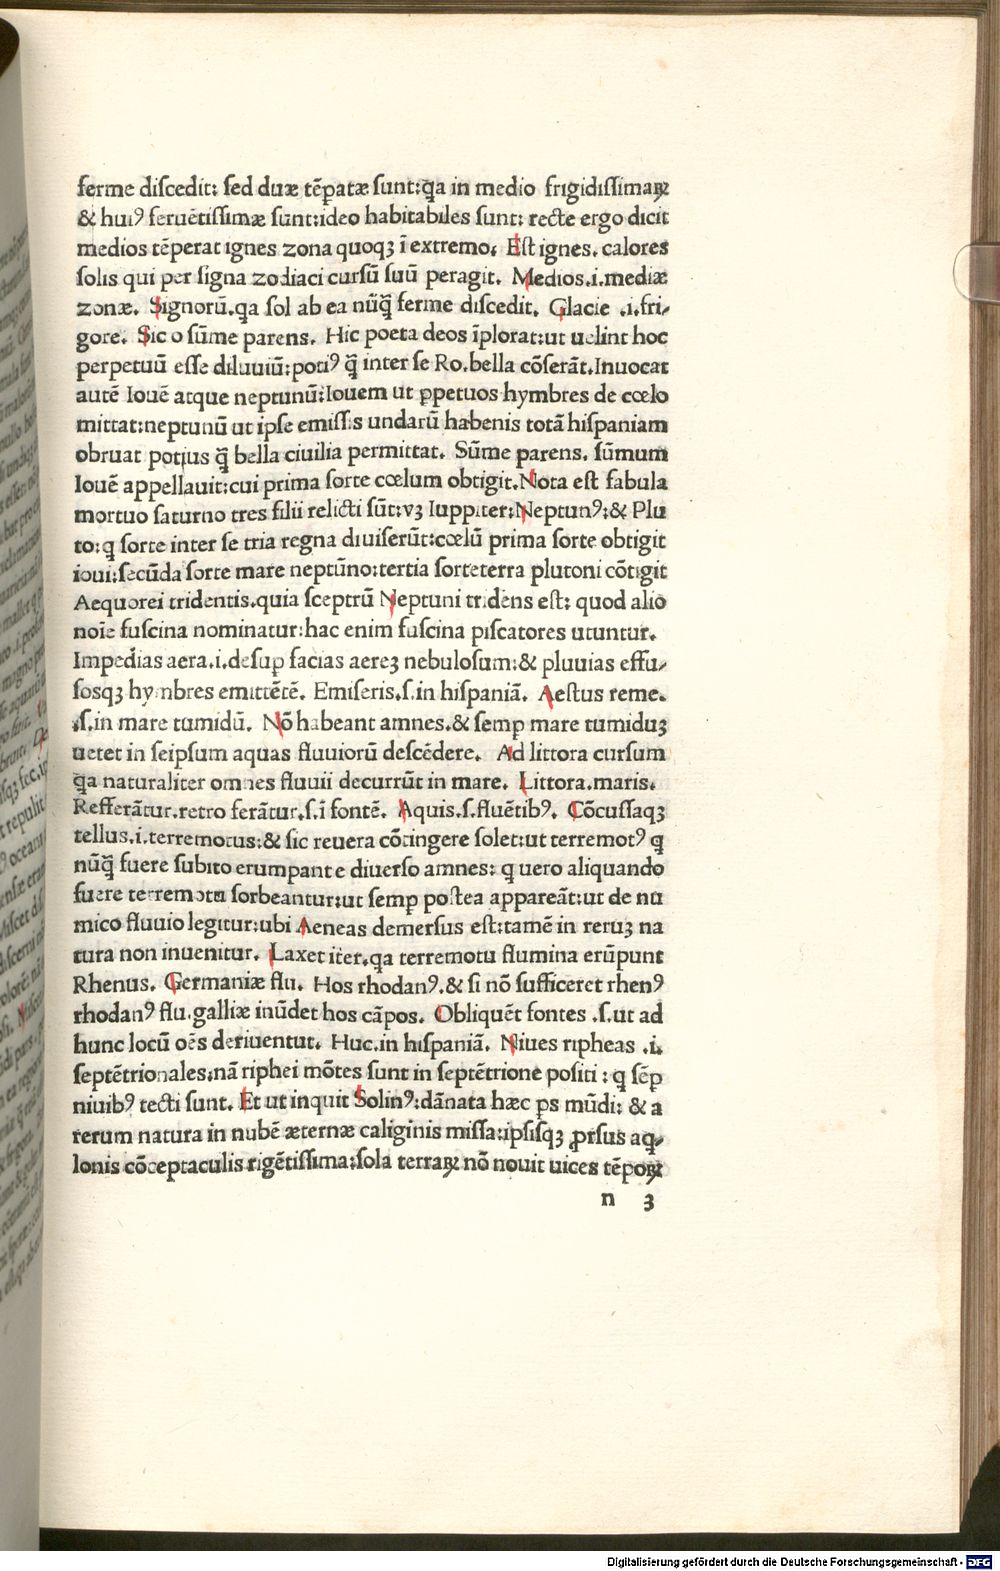 ferme diſcedit: ſed duæ tēꝑatæ ſunt:q̄a in medio frigidiſſimaꝝ
& huiꝰ feruētiſſimæ ſunt:ideo habitabiles ſunt: recte ergo dicit
medios tēperat ignes zona quoqꝫ ī extremo. Eſt ignes. calores
ſolis qui per ſigna zodiaci curſū ſuū peragit. Medios.i.mediæ
zonæ. Signorū.qa ſol ab ea nūq̄ ferme diſcedit. Glacie .i.fri⸗
gore. Sic o ſūme parens. Hic poeta deos īplorat:ut uelint hoc
perpetuū eſſe diluuiū:potiꝰ q̄ inter ſe Ro.bella cōſerāt.Inuocat
autē Iouē atque neptunū:Iouem ut ꝑpetuos hymbres de cœlo
mittat:neptunū ut ipſe emiſſis undarū habenis totā hiſpaniam
obruat potius q̄ bella ciuilia permittat. Sūme parens. ſūmum
Iouē appellauit:cui prima ſorte cœlum obtigit.Nota eſt fabula
mortuo ſaturno tres filii relicti ſūt:vꝫ Iuppiter:Neptunꝰ:& Plu
to:q ſorte inter ſe tria regna diuiſerūt:cœlū prima ſorte obtigit
ioui:ſecūda ſorte mare neptūno:tertia ſorteterra plutoni cōtigit
Aequorei tridentis.quia ſceptrū Neptuni tridens eſt: quod alio
noīe fuſcina nominatur:hac enim fuſcina piſcatores utuntur.
Impedias aera.i.deſuꝑ facias aereꝫ nebuloſum:& pluuias effu⸗
ſoſqꝫ hymbres emittētē. Emiſeris.ſ.in hiſpaniā. Aeſtus reme.
.ſ.in mare tumidū. Nō habeant amnes.& ſemꝑ mare tumiduꝫ
uetet in ſeipſum aquas fluuiorū deſcēdere. Ad littora curſum
q̄a naturaliter omnes fluuii decurrūt in mare. Littora.maris.
Refferātur.retro ferātur.ſ.ī fontē. Aquis.ſ.fluētibꝰ. Cōcuſſaqꝫ
tellus.i.terremotus:& ſic reuera cōtingere ſolet:ut terremotꝰ q̄
nūq̄ fuere ſubito erumpant e diuerſo amnes: q uero aliquando
fuere terremotu ſorbeantur:ut ſemꝑ poſtea appareāt:ut de nu
mico fluuio legitur:ubi Aeneas demerſus eſt:tamē in reruꝫ na
tura non inuenitur. Laxet iter.qa terremotu flumina erūpunt
Rhenus. Germaniæ flu. Hos rhodanꝰ.& ſi nō ſufficeret rhenꝰ
rhodanꝰ flu.galliæ inūdet hos cāpos. Obliquēt fontes .ſ.ut ad
hunc locū oēs deriuentut. Huc.in hiſpaniā. Niues ripheas .i.
ſeptētrionales:nā riphei mōtes ſunt in ſeptētrione poſiti : q ſēꝑ
niuibꝰ tecti ſunt. Et ut inquit Solinꝰ:dānata hæc ꝑs mūdi: & a
rerum natura in nubē æternæ caliginis miſſa:ipſiſqꝫ ꝓrſus aq⸗
lonis cōceptaculis rigētiſſima:ſola terraꝝ nō nouit uices tēpoꝝ
n 3
Digitalisierung gefördert durch die Deutsche Forschungsgemeinschaft - DFG